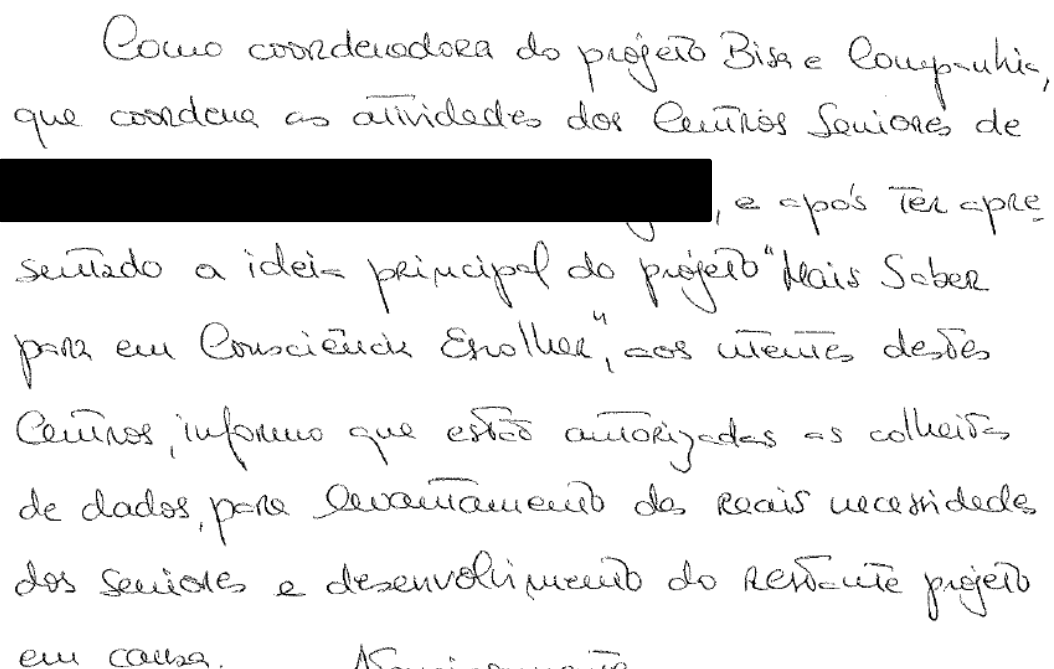 Como coordenadora do projeto Bisa e Companhia,
que coordena as atividades dos Centros Seniores de
, e após ter apre
sentado a ideia principal do projeto "Mais Saber
para em Consciência Escolher", aos utentes destes
Centros, informo que estão autorizadas as colheitas
de dados, para levantamento das reais necessidades
dos seniores e desenvolvimento do restante projeto
em causa.